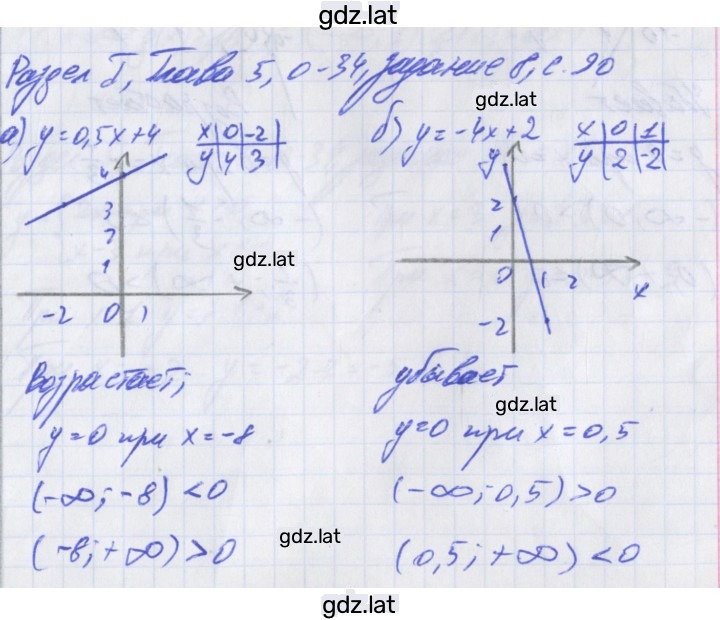 gdz.lat
Раздел I, Глава 5, О-34, задание 8, с. 90
gdz.lat
а) y=0,5x+4
x|0|-2|
y|4|3|
б) y=-4x+2
x|0|1|
y|2|-2|
4
3
2
1
-2 0 1
gdz.lat
y
2
1
0 1 2
x
-2
Возрастает;
y=0 при x=-8
(-∞;-8) <0
(-8;+∞) >0
gdz.lat
убывает
gdz.lat
y=0 при x=0,5
(-∞;0,5) >0
(0,5;+∞) <0
gdz.lat